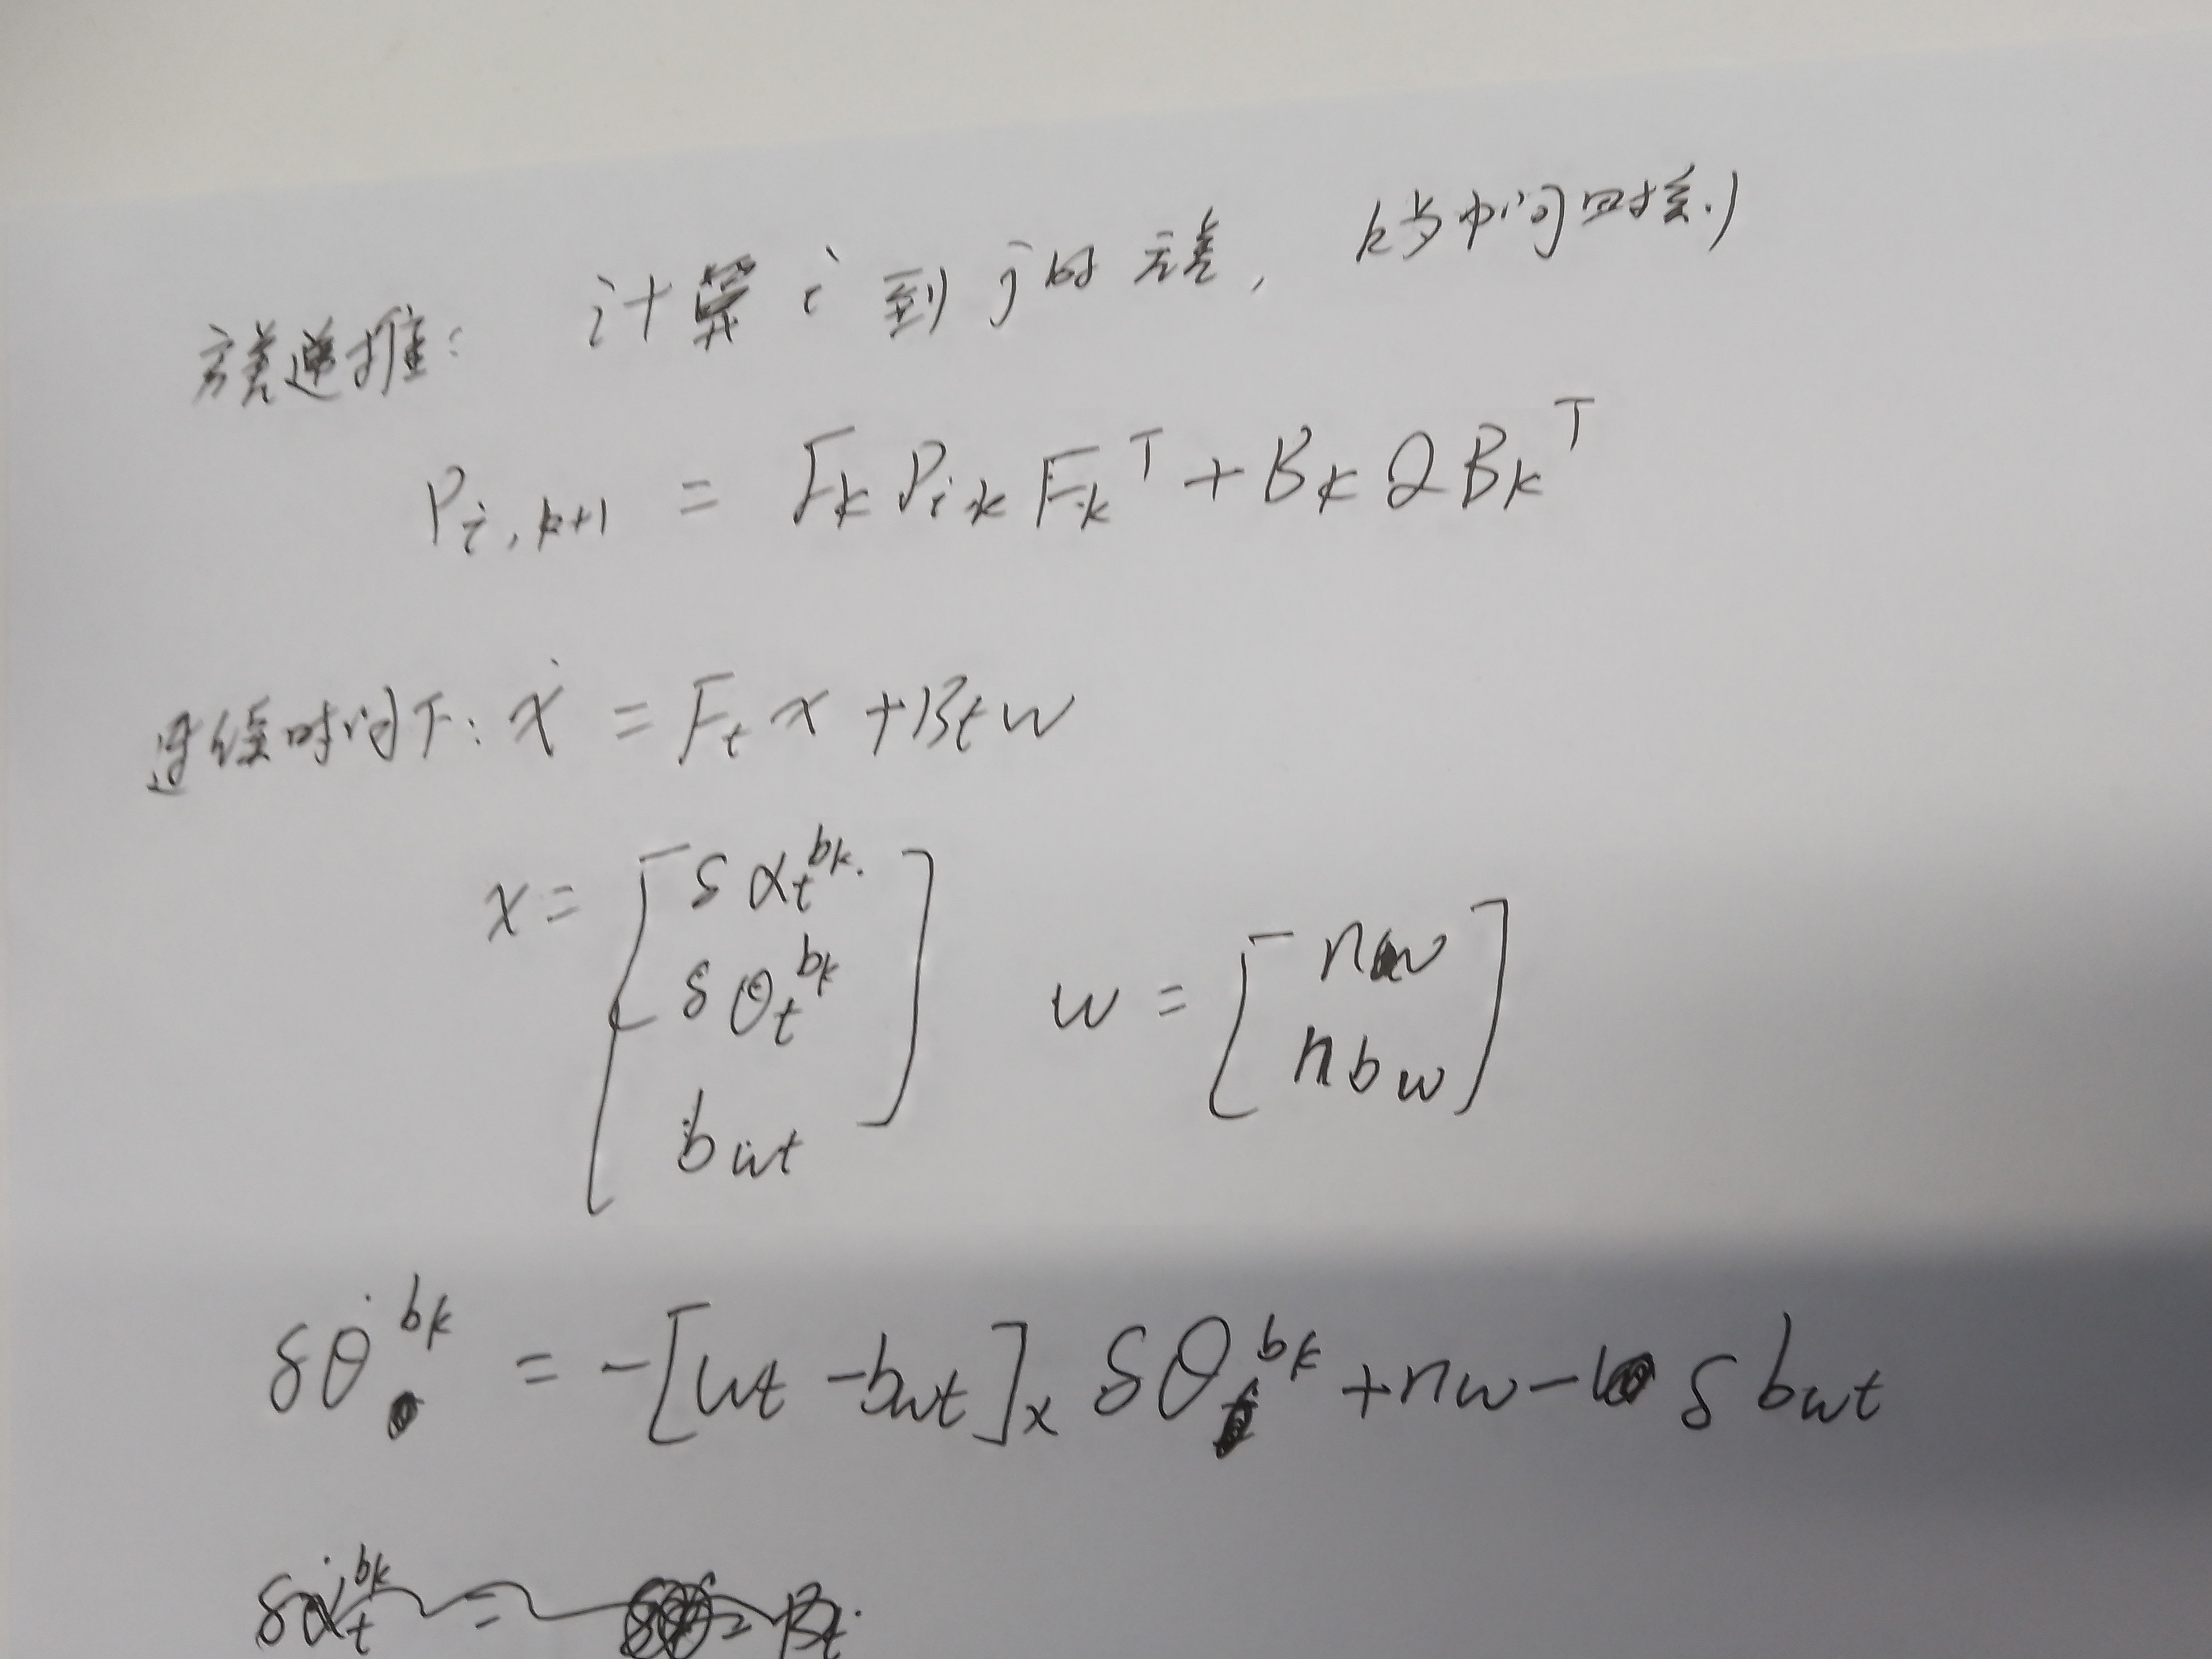 方差递推: 计算 i 到 j 的方差, k为中间时刻
P_{i,k+1} = F_k P_{ik} F_k^T + B_k Q B_k^T
连续时间下: ẋ = F_t x + B_t w
x = [δα_t^{bk}
δθ_t^{bk}
b_{wt}] w = [n_w
n_{bw}]
δθ̇^{bk} = -[w_t - b_{wt}]_× δθ^{bk} + n_w - δb_{wt}